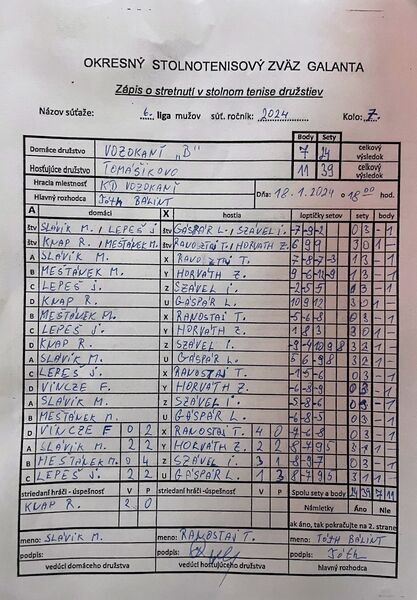 OKRESNÝ STOLNOTENISOVÝ ZVÄZ GALANTA
Zápis o stretnutí v stolnom tenise družstiev
Názov súťaže: 6. liga mužov súť. ročník: 2024 Kolo: 7.
Body Sety
Domáce družstvo VOZOKANY „B" 7 24 celkový výsledok
Hosťujúce družstvo TOMÁŠIKOVO 11 39 celkový výsledok
Hracia miestnosť KD VOZOKANY Dňa: 18.1.2024 o 18 00 hod.
Hlavný rozhodca Tóth BÁLINT
A domáci X hostia loptičky setov sety body
štv SLÁVIK M., LEPEŠ J. štv GÁSPÁR L., SZÁVEL I. -7-9-2 0 3 - 1
štv KNAP R., MEŠŤÁNEK M. štv HORVÁTH Z. 6 9 9 3 0 1 -
A SLÁVIK M. X 1 3 - 1
B MEŠŤÁNEK M. Y HORVÁTH Z. 1 3 - 1
C LEPEŠ J. Z SZÁVEL I. -2-5-5 0 3 - 1
D KNAP R. U GÁSPÁR L. 10 9 12 3 0 1 -
B MEŠŤÁNEK M. X -5-6-8 0 3 - 1
C LEPEŠ J. Y HORVÁTH Z. 1 8 3 3 0 1 -
D KNAP R. Z SZÁVEL I. -9-4 10 9 8 3 2 1 -
A SLÁVIK M. U GÁSPÁR L. 3 1 1 -
C LEPEŠ J. X -1-5-6 0 3 - 1
D VINCZE F. Y HORVÁTH Z. -6-8-9 0 3 - 1
A SLÁVIK M. Z SZÁVEL I. -5-8-6 0 3 - 1
B MEŠTANEK M. U GÁSPÁR L. -6-8-5 0 3 - 1
D VINCZE F 0 2 X RANOSTAI T. 4 0 0 3 - 1
A SLÁVIK M. 2 2 Y HORVÁTH Z. 2 2 8-4 9 5 3 1 1 -
B MEŠTANEK M. 0 4 Z SZÁVEL I. 3 1 0 3 - 1
C LEPEŠ J. 2 2 U GÁSPÁR L. 1 3 8-7 9 5 3 1 1 -
striedaní hráči - úspešnosť V P striedaní hráči - úspešnosť V P Spolu sety a body 24 39 7 11
KNAP R. 2 0 Námietky Áno Nie
ak áno, tak pokračujte na 2. strane
meno: SLÁVIK M. meno: RANOSTAI T. meno: TÓTH BÁLINT
podpis: podpis: podpis: Tóth
vedúci domáceho družstva vedúci hosťujúceho družstva hlavný rozhodca